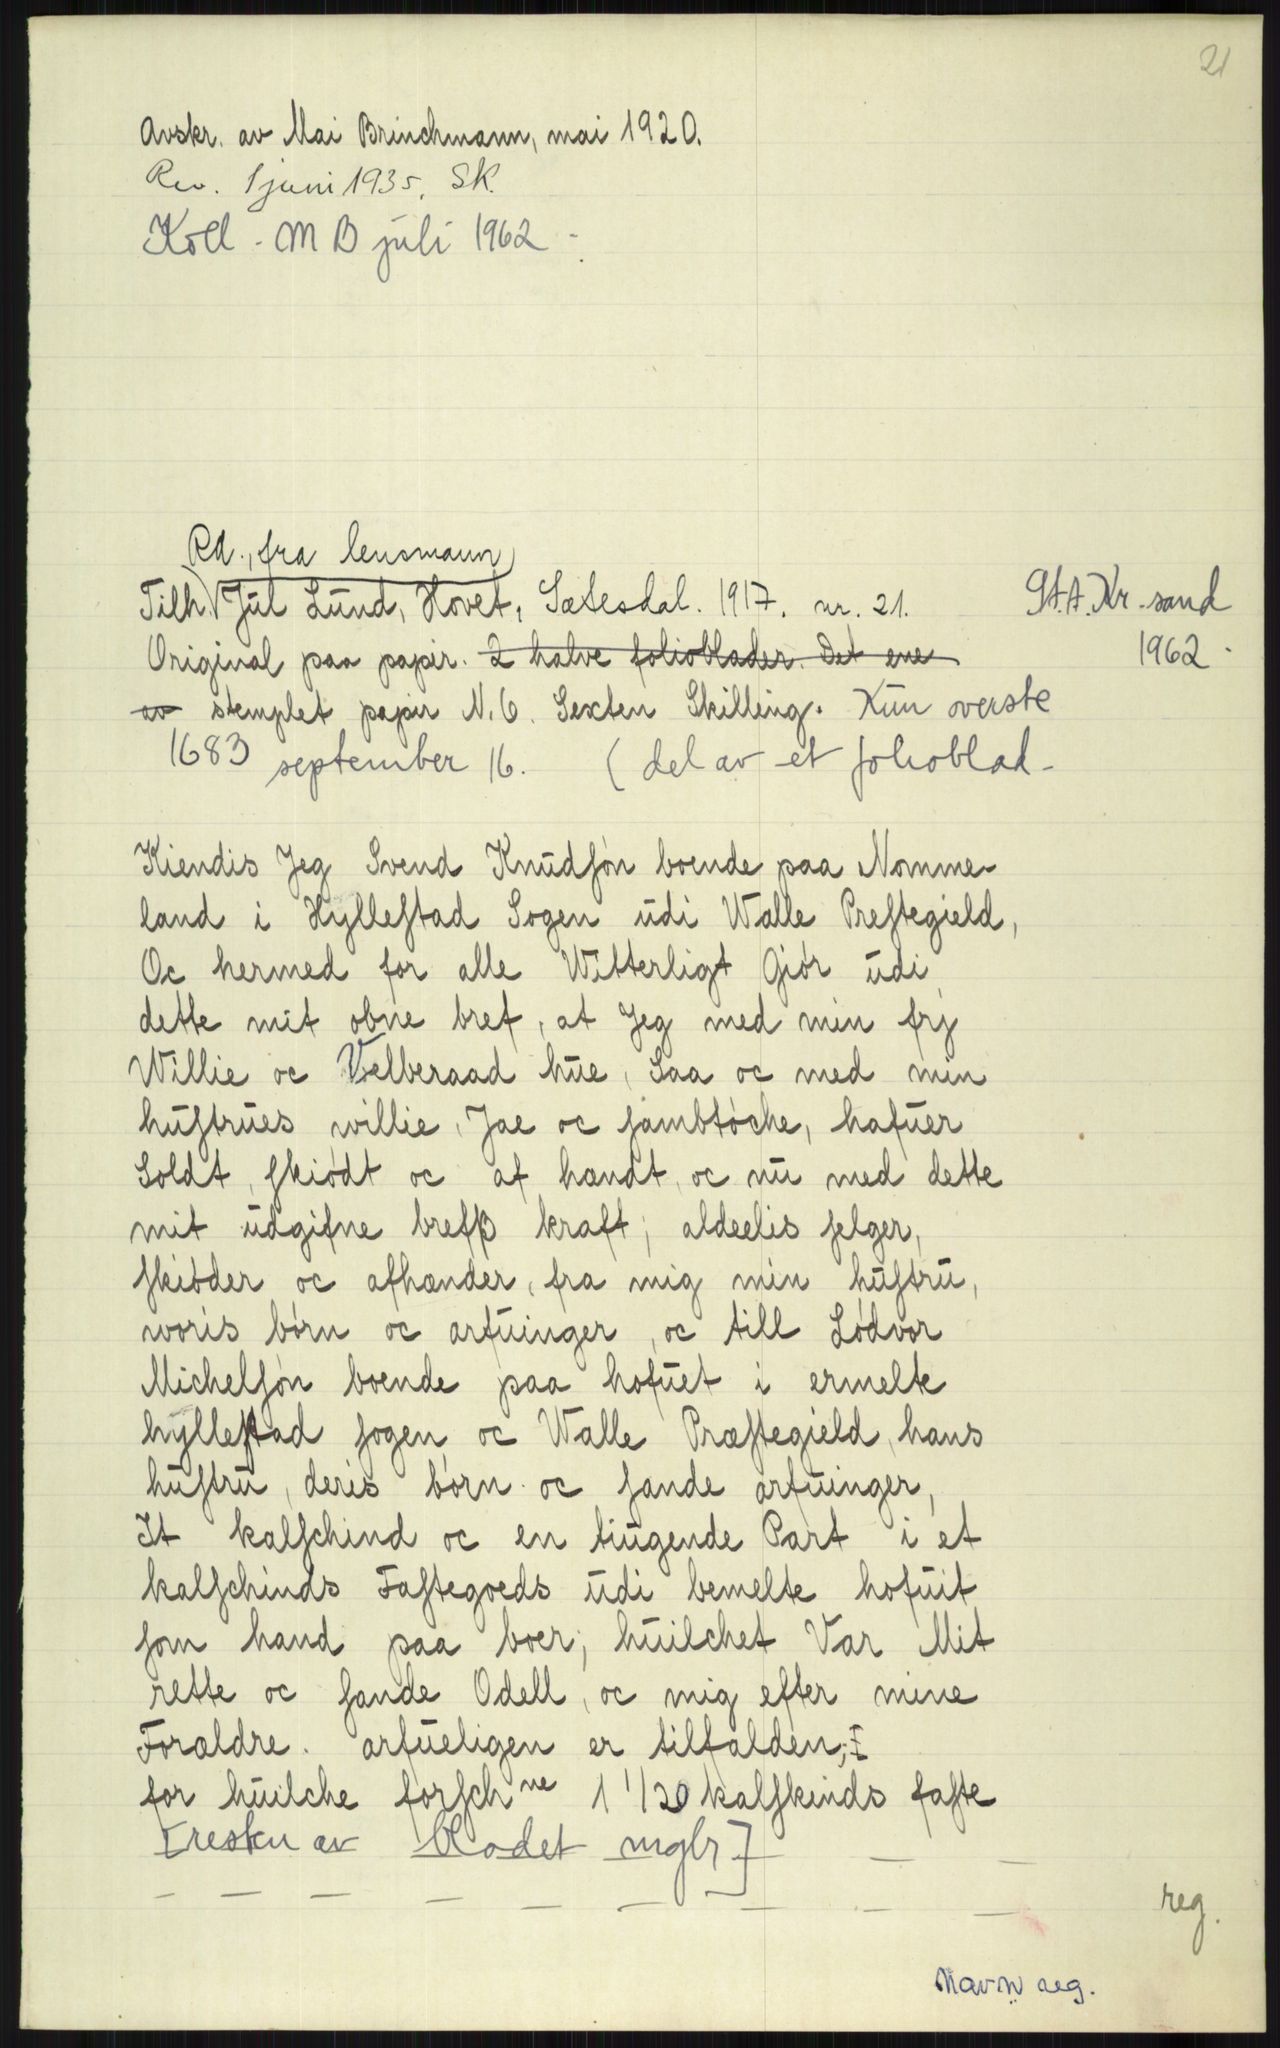 21
Avskr. av Mai Brinchmann, mai 1920.
Rev. 1 juni 1935. SK.
Koll - M B juli 1962 -
RA., fra lensmann
Tilh. Jul Lund, Hovet, Sætesdal. 1917. nr. 21.
St.A. Kr.sand
1962.
Original paa papir. 2 halve folioblader. Det ene
av stemplet papir N. 6. Sexten Skilling. Kun øverste
1683 september 16. (del av et folioblad -
Kiendis Jeg Svend Knudsøn boende paa Nomme-
land i Hyllestad Sogen udi Walle Prestegield,
Oc hermed for alle Witterligt Giør udi
dette mit obne bref, at Jeg med min frj
Willie oc Velberaad hue, Saa oc med min
hustrues willie, Jae oc sambtøche, hafuer
Soldt, skiødt oc af hændt, oc nu med dette
mit udgifne brefß kraft; aldeelis selger,
skiøder oc afhænder, fra mig min hustru,
woris børn oc arfuinger, oc till Lødvor
Michelsøn boende paa hofuet i ermelte
hyllestad sogen oc Walle Præstegield, hans
hustru, deris børn oc sande arfuinger,
It kalfschind oc en tiugende Part i et
kalfschinds Fastegoeds udi bemelte hofuit
som hand paa boer; huilchet Var Mit
rette oc sande Odell, oc mig efter mine
Forældre. arfueligen er tilfalden;
for huilche forsch ne 1 1/20 kalfskinds faste
[resten av bladet mglr]
reg.
Navn reg.